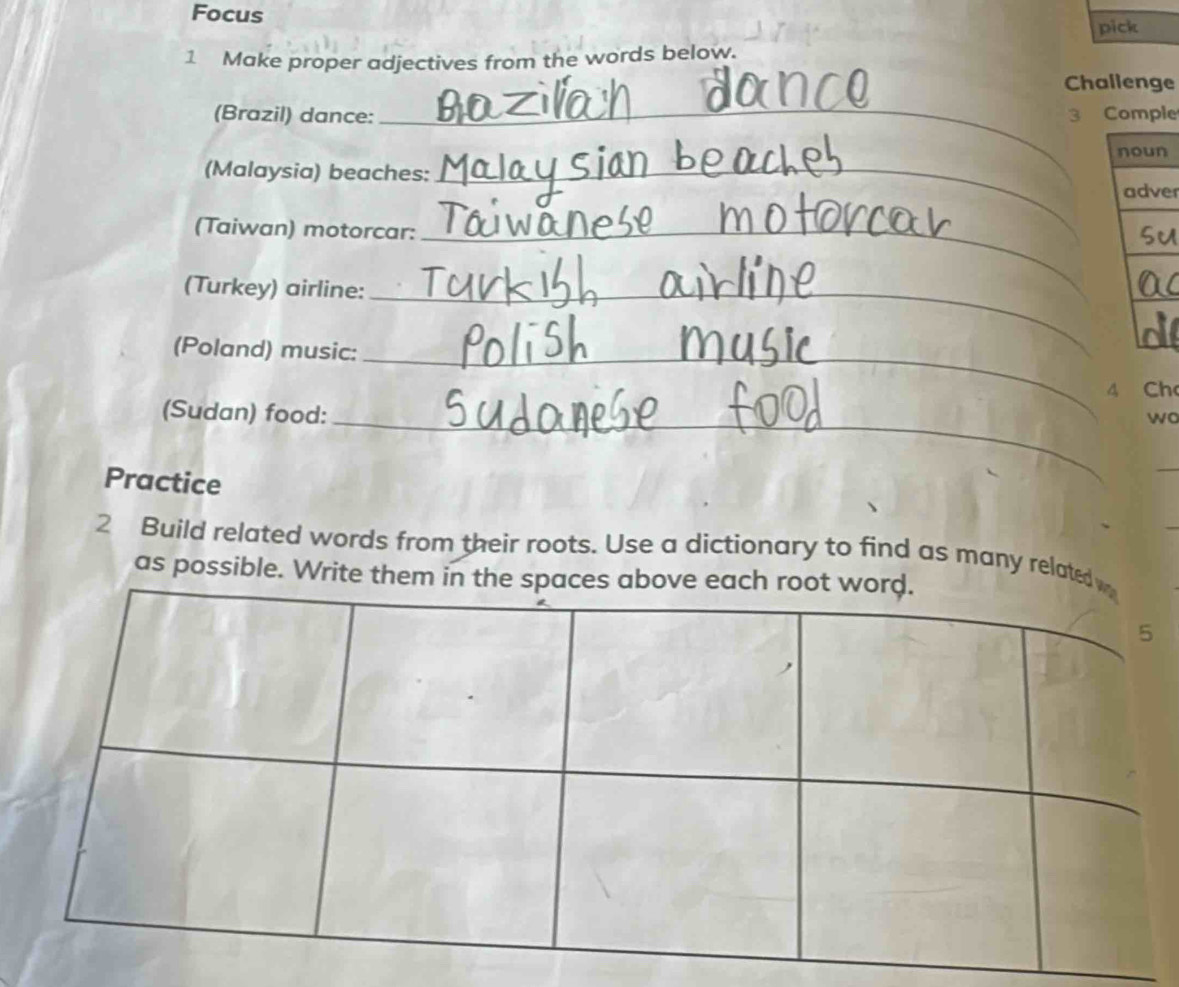 Focus
1 Make proper adjectives from the words below.
(Brazil) dance: Brazilian dance
(Malaysia) beaches: Malaysian beaches
(Taiwan) motorcar: Taiwanese motorcar
(Turkey) airline: Turkish airline
(Poland) music: Polish music
(Sudan) food: Sudanese food
Practice
2 Build related words from their roots. Use a dictionary to find as many related
as possible. Write them in the spaces above each root word.
pick
Challenge
3 Comple
noun
adver
su
ac
de
4 Cho
wo
5